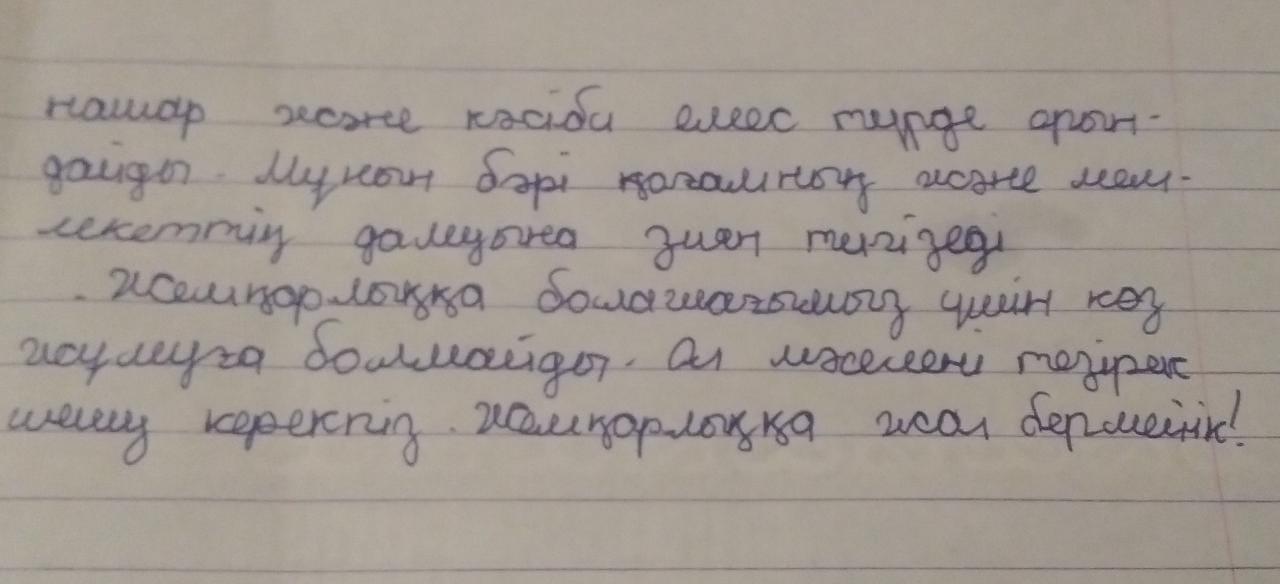 нашар және кәсіби емес түрде орын-
дайды. Мұнын бәрі қоғамның және мем-
лекеттің дамуына зиян тигізеді
. Жемқорлыққа болашағымыз үшін көз
жұмуға болмайды. Ол мәселені тезірек
шешу керекпіз. Жемқорлыққа жол бермейік!